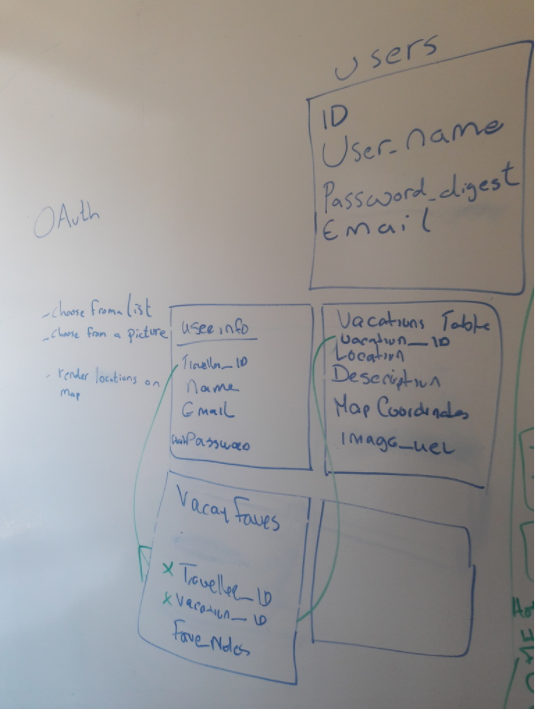 users
ID
User_name
Password_digest
Email
OAuth
- choose from a list
- choose from a picture
- render locations on
Map
user info
Traveller_ID
name
Email
Password
Vacations Table
Vacation_ID
Location
Description
Map Coordinates
Image_URL
Vacay Faves
x Traveller_ID
x Vacation_ID
Fave_Notes